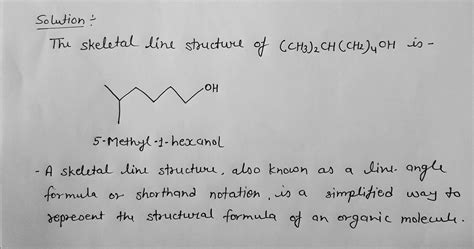 Solution ÷
The skeletal line structure of (CH3)2CH(CH2)4OH is -
OH
5-Methyl-1-hexanol
- A skeletal line structure, also known as a line-angle
formula or shorthand notation, is a simplified way to
represent the structural formula of an organic molecule.